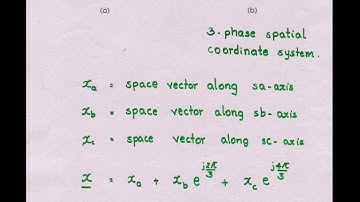 (a) (b)
3-phase spatial
coordinate system.
xa = space vector along sa-axis
xb = space vector along sb-axis
xc = space vector along sc-axis
x = xa + xb e^j2π/3 + xc e^j4π/3